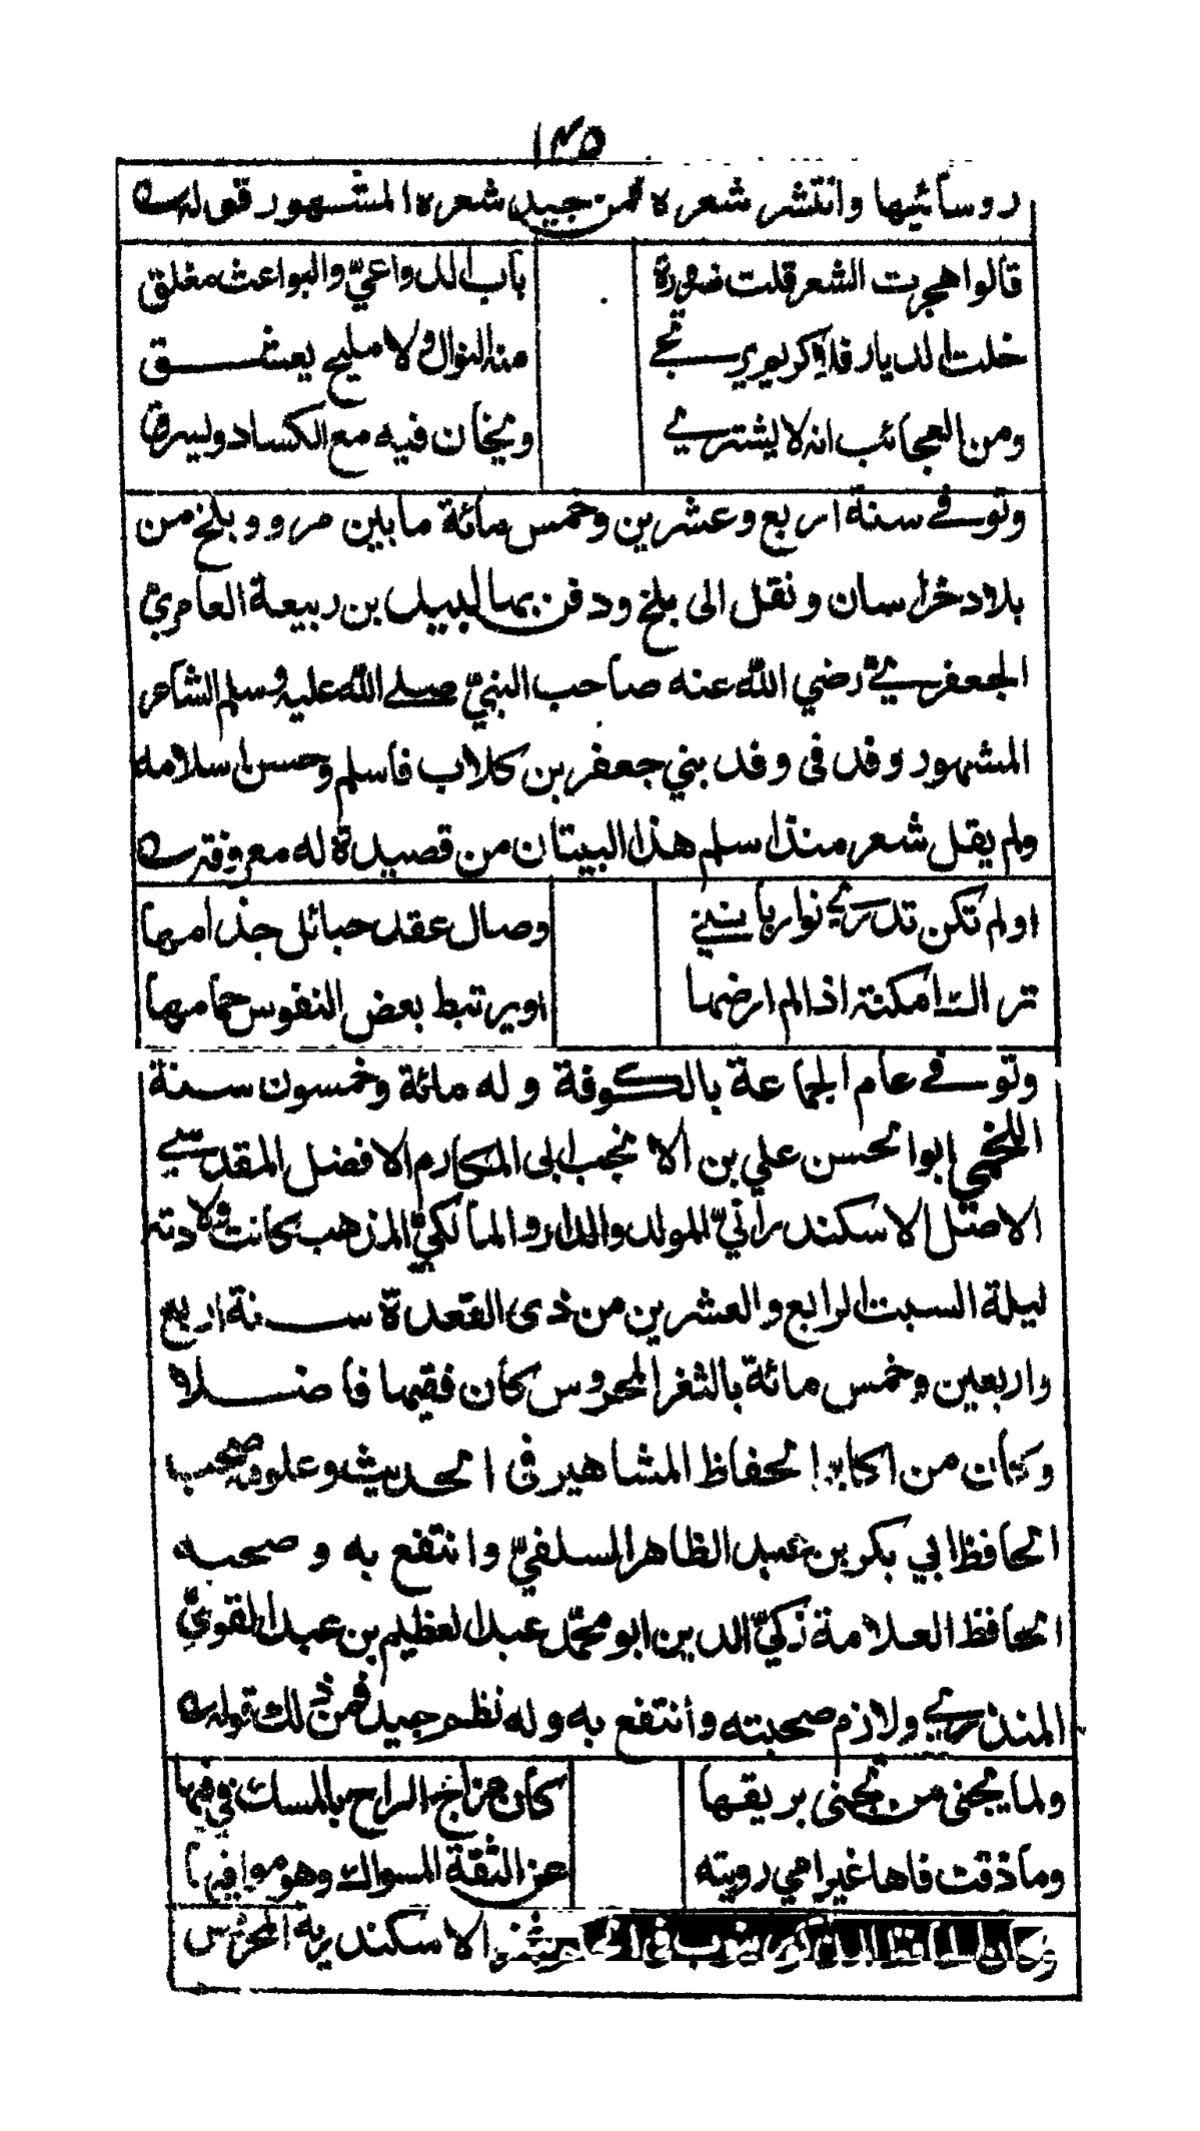 ١٣٥
روسائيها وانتشر شعره فمن جيد شعره المشهور قوله
قالوا هجرت الشعر قلت ضرورة باب الدواعيّ والبواعث مغلق
خلت الديار فلا كريم يرتجي منه النوال ولا مليح يعشق
ومن العجائب انه لا يشتري ويخان فيه مع الكساد ويسرق
وتوفي سنة اربع وعشرين وخمس مائة ما بين مرو وبلخ من
بلاد خراسان ونقل الى بلخ ودفن بها لبيد بن ربيعة العامريّ
الجعفريّ رضي الله عنه صاحب النبيّ صلى الله عليه وسلم الشاعر
المشهور وفد في وفد بني جعفر بن كلاب فاسلم وحسن اسلامه
ولم يقل شعر منذ اسلم هذا البيتان من قصيدة له معروفة
اولم تكن تدري نوار بانني وصال عقد حبائل جذامها
تراك امكنة اذا لم ارضها اويرتبط بعض النفوس حمامها
وتوفي عام الجماعة بالكوفة وله مائة وخمسون سنة
اللخمي ابو الحسن علي بن الانجب ابى المكارم الافضل المقدسي
الاصل الاسكندرانيّ المولد والدار والمالكيّ المذهب كانت ولادته
ليلة السبت الرابع والعشرين من ذى القعدة سنة اربع
واربعين وخمس مائة بالثغر المحروس كان فقيها فاضلا
وكان من اكابر الحفاظ المشاهير في الحديث وعلومه صحب
الحافظ ابي بكر بن عبد الظاهر السلفيّ وانتفع به وصحبه
الحافظ العلامة زكيّ الدين ابو محمّد عبد العظيم بن عبد القويّ
المنذري ولازم صحبته وأنتفع به وله نظم جيد فمن ذلك قوله
ولما يجنى من تجنى بريقها كان مزاج الراح بالمسك في فيها
وما ذقت فاها غير اني رويته عن الثقة المسواك وهو موافيها
وكان الحافظ المذكور ينوب في الحكم بثغر الاسكندرية المحروس